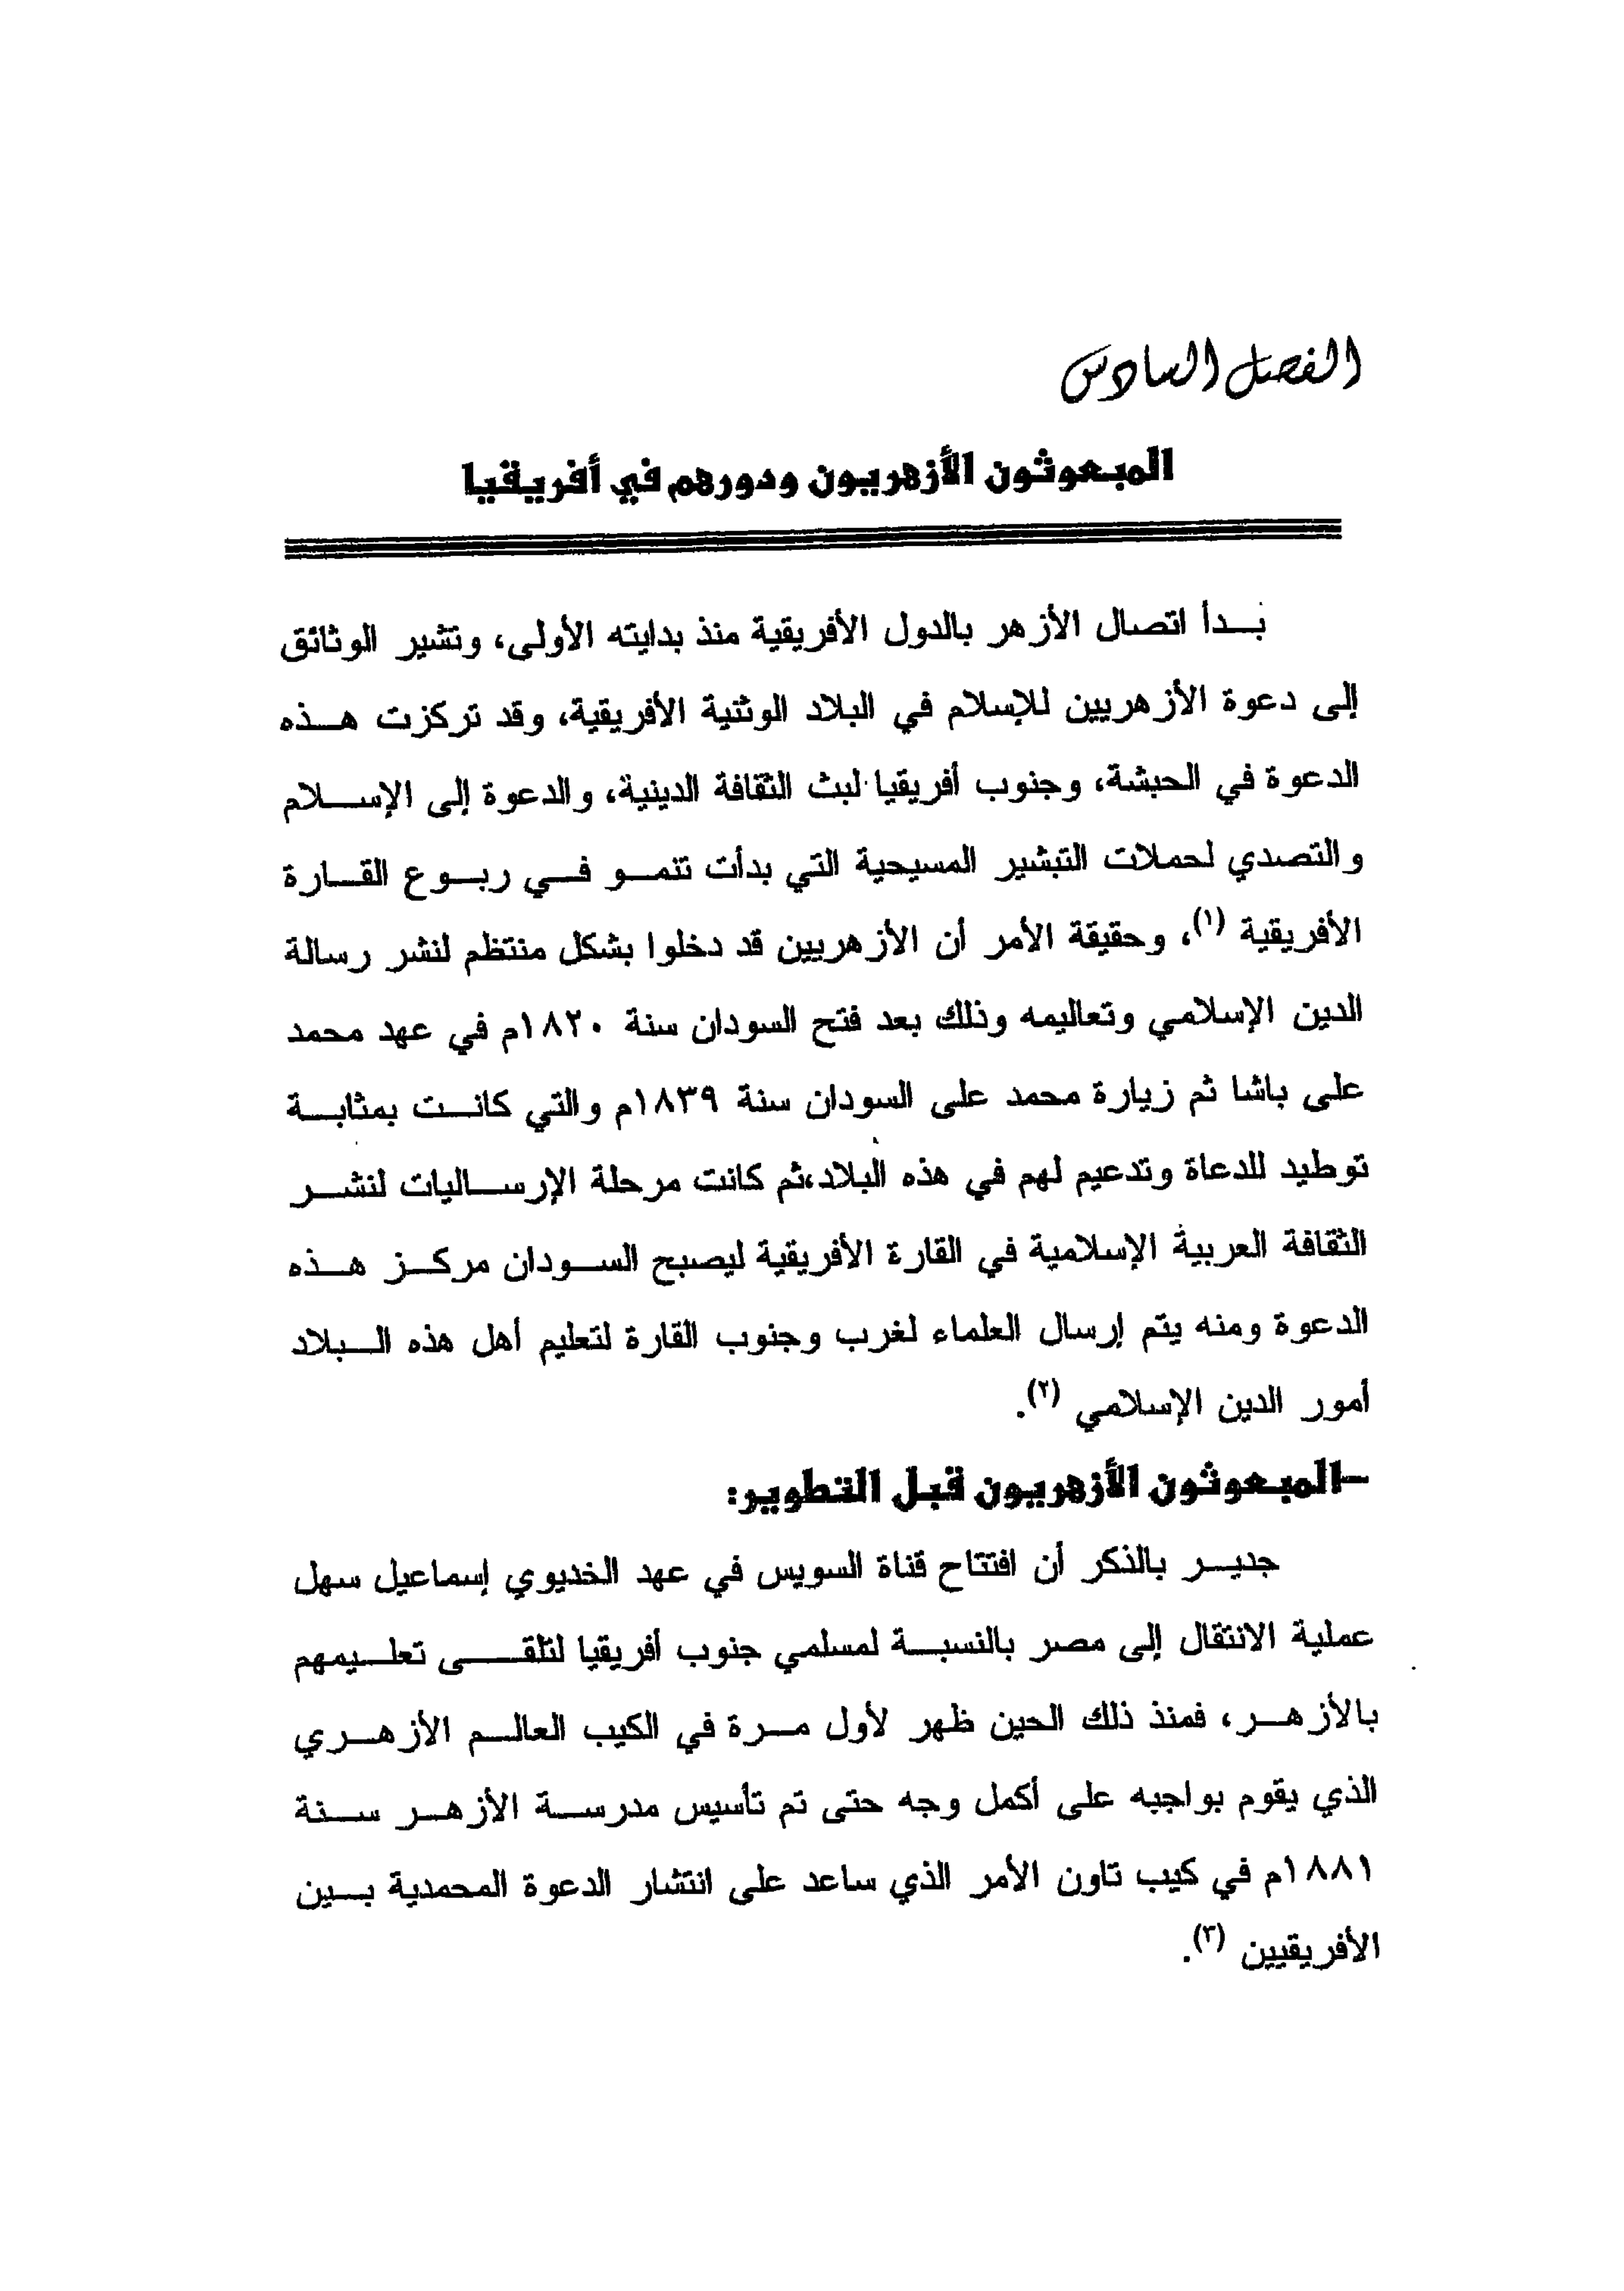 الفصل السادس
المبعوثون الأزهريون ودورهم في أفريقيا
بدأ اتصال الأزهر بالدول الأفريقية منذ بدايته الأولى، وتشير الوثائق
إلى دعوة الأزهريين للإسلام في البلاد الوثنية الأفريقية، وقد تركزت هذه
الدعوة في الحبشة، وجنوب أفريقيا لبث الثقافة الدينية، والدعوة إلى الإسلام
والتصدي لحملات التبشير المسيحية التي بدأت تنمو في ربوع القارة
الأفريقية (١)، وحقيقة الأمر أن الأزهريين قد دخلوا بشكل منتظم لنشر رسالة
الدين الإسلامي وتعاليمه وذلك بعد فتح السودان سنة ١٨٢٠م في عهد محمد
على باشا ثم زيارة محمد على السودان سنة ١٨٣٩م والتي كانت بمثابة
توطيد للدعاة وتدعيم لهم في هذه البلاد،ثم كانت مرحلة الإرساليات لنشر
الثقافة العربية الإسلامية في القارة الأفريقية ليصبح السودان مركز هذه
الدعوة ومنه يتم إرسال العلماء لغرب وجنوب القارة لتعليم أهل هذه البلاد
أمور الدين الإسلامي (٢).
-المبعوثون الأزهريون قبل التطوير:
جدير بالذكر أن افتتاح قناة السويس في عهد الخديوي إسماعيل سهل
عملية الانتقال إلى مصر بالنسبة لمسلمي جنوب أفريقيا لتلقى تعليمهم
بالأزهر، فمنذ ذلك الحين ظهر لأول مرة في الكيب العالم الأزهري
الذي يقوم بواجبه على أكمل وجه حتى تم تأسيس مدرسة الأزهر سنة
١٨٨١م في كيب تاون الأمر الذي ساعد على انتشار الدعوة المحمدية بين
الأفريقيين (٣).